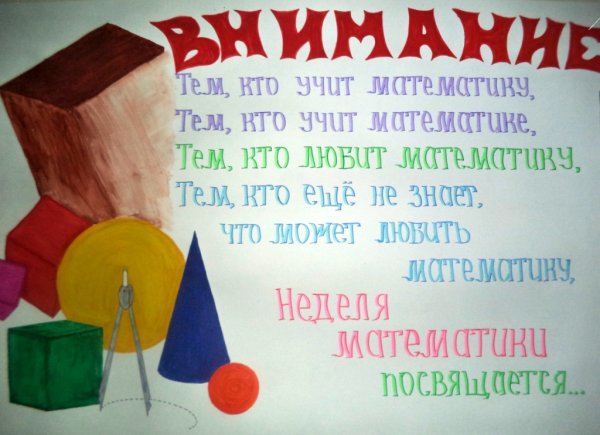 ВНИМАНИЕ
Тем, кто учит математику,
Тем, кто учит математике,
Тем, кто любит математику,
Тем, кто ещё не знает,
что может любить
математику,
Неделя
математики
посвящается...